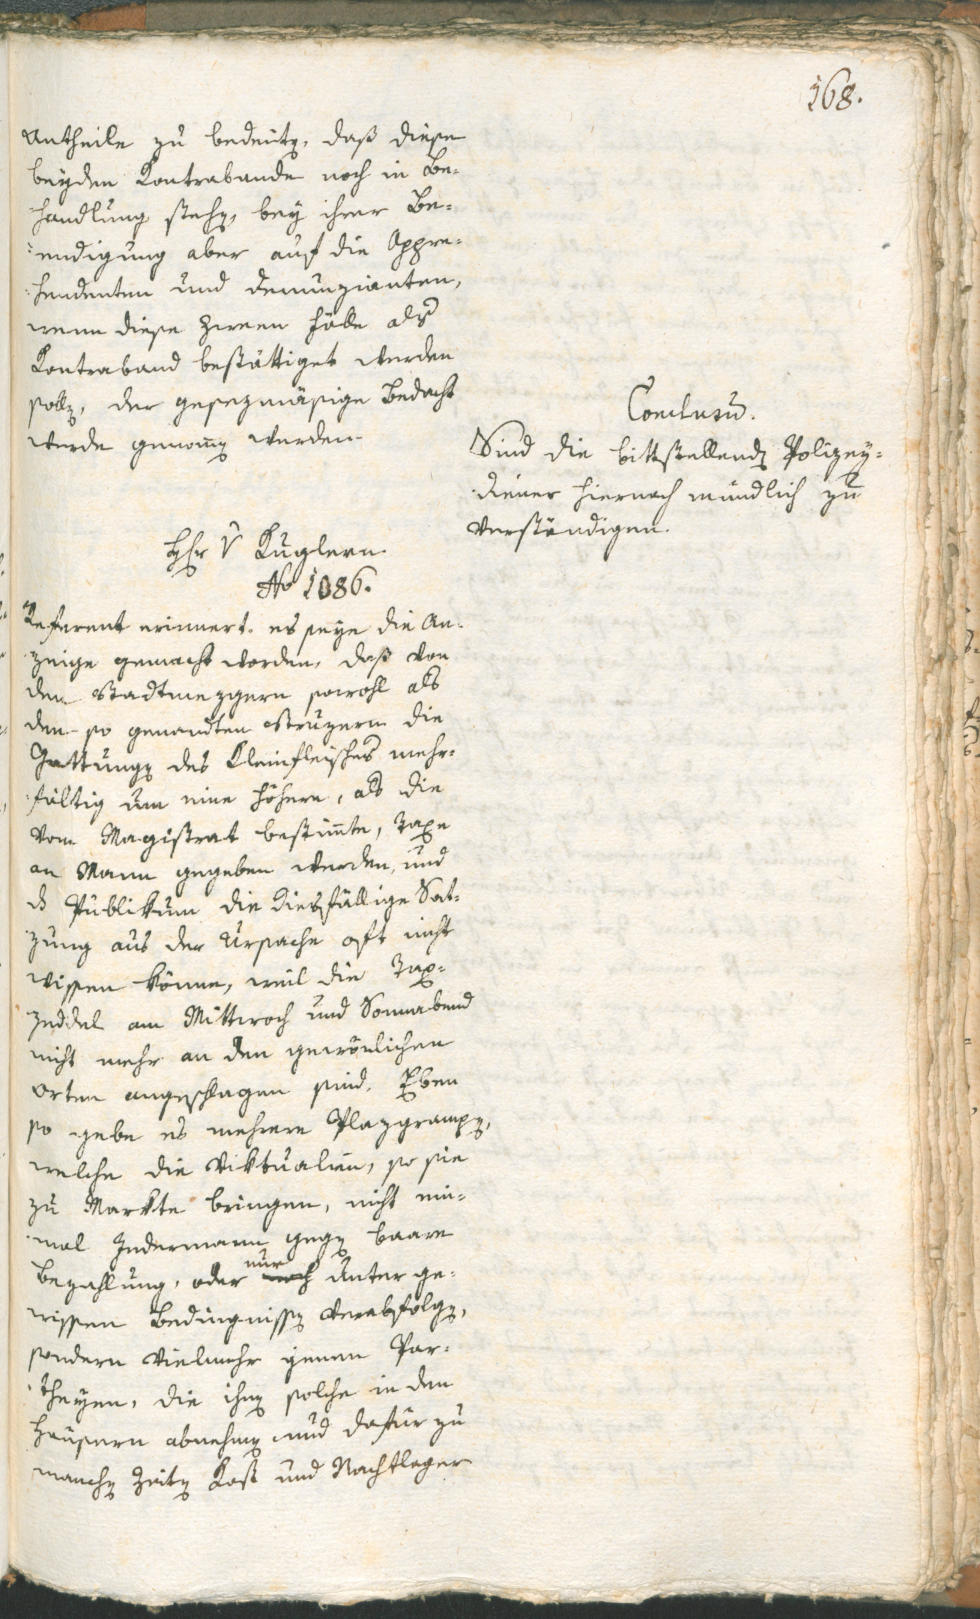 168.
Antheile zu bedeuten, daß diese
beyden Kontrabande noch in Be-
handlung stehen, bey ihrer Be-
endigung aber auf die Appre-
hendenten und Denunzianten,
wenn diese zween Fälle als
Kontraband bestättiget werden
sollen, der gesezmäsige Bedacht
werde genommen werden.
Conclusum.
Sind die bittstellenden Polizey-
diener hiernach mündlich zu
verständigen.
Hhr v Kuglern.
No 1086.
Referent erinnert. es seye die An-
zeige gemacht worden, daß von
den Stadtmezgern sowohl als
den so genandten Struzern die
Gattungen des Kleinfleisches mehr-
fältig um eine höhere, als die
vom Magistrat bestimmte, Taxe
an Mann gegeben werden, und
ds Publikum die diesfällige Sat-
zung aus der Ursache oft nicht
wissen könne, weil die Tax-
zeddel am Mittwoch und Sonnabend
nicht mehr an den gewönlichen
Orten angeschlagen sind. Eben
so gebe es mehrere Plazgrampen,
welche die Viktualien, so sie
zu Markte bringen, nicht ein-
mal Jedermann gegen baare
Bezahlung, oder noch nur unter ge-
wissen Bedingnissen verabfolgen,
sondern vielmehr jenen Par-
theyen, die ihnen solche in den
Häusern abnehmen und dafür zu
manchen Zeiten Kost und Nachtlager